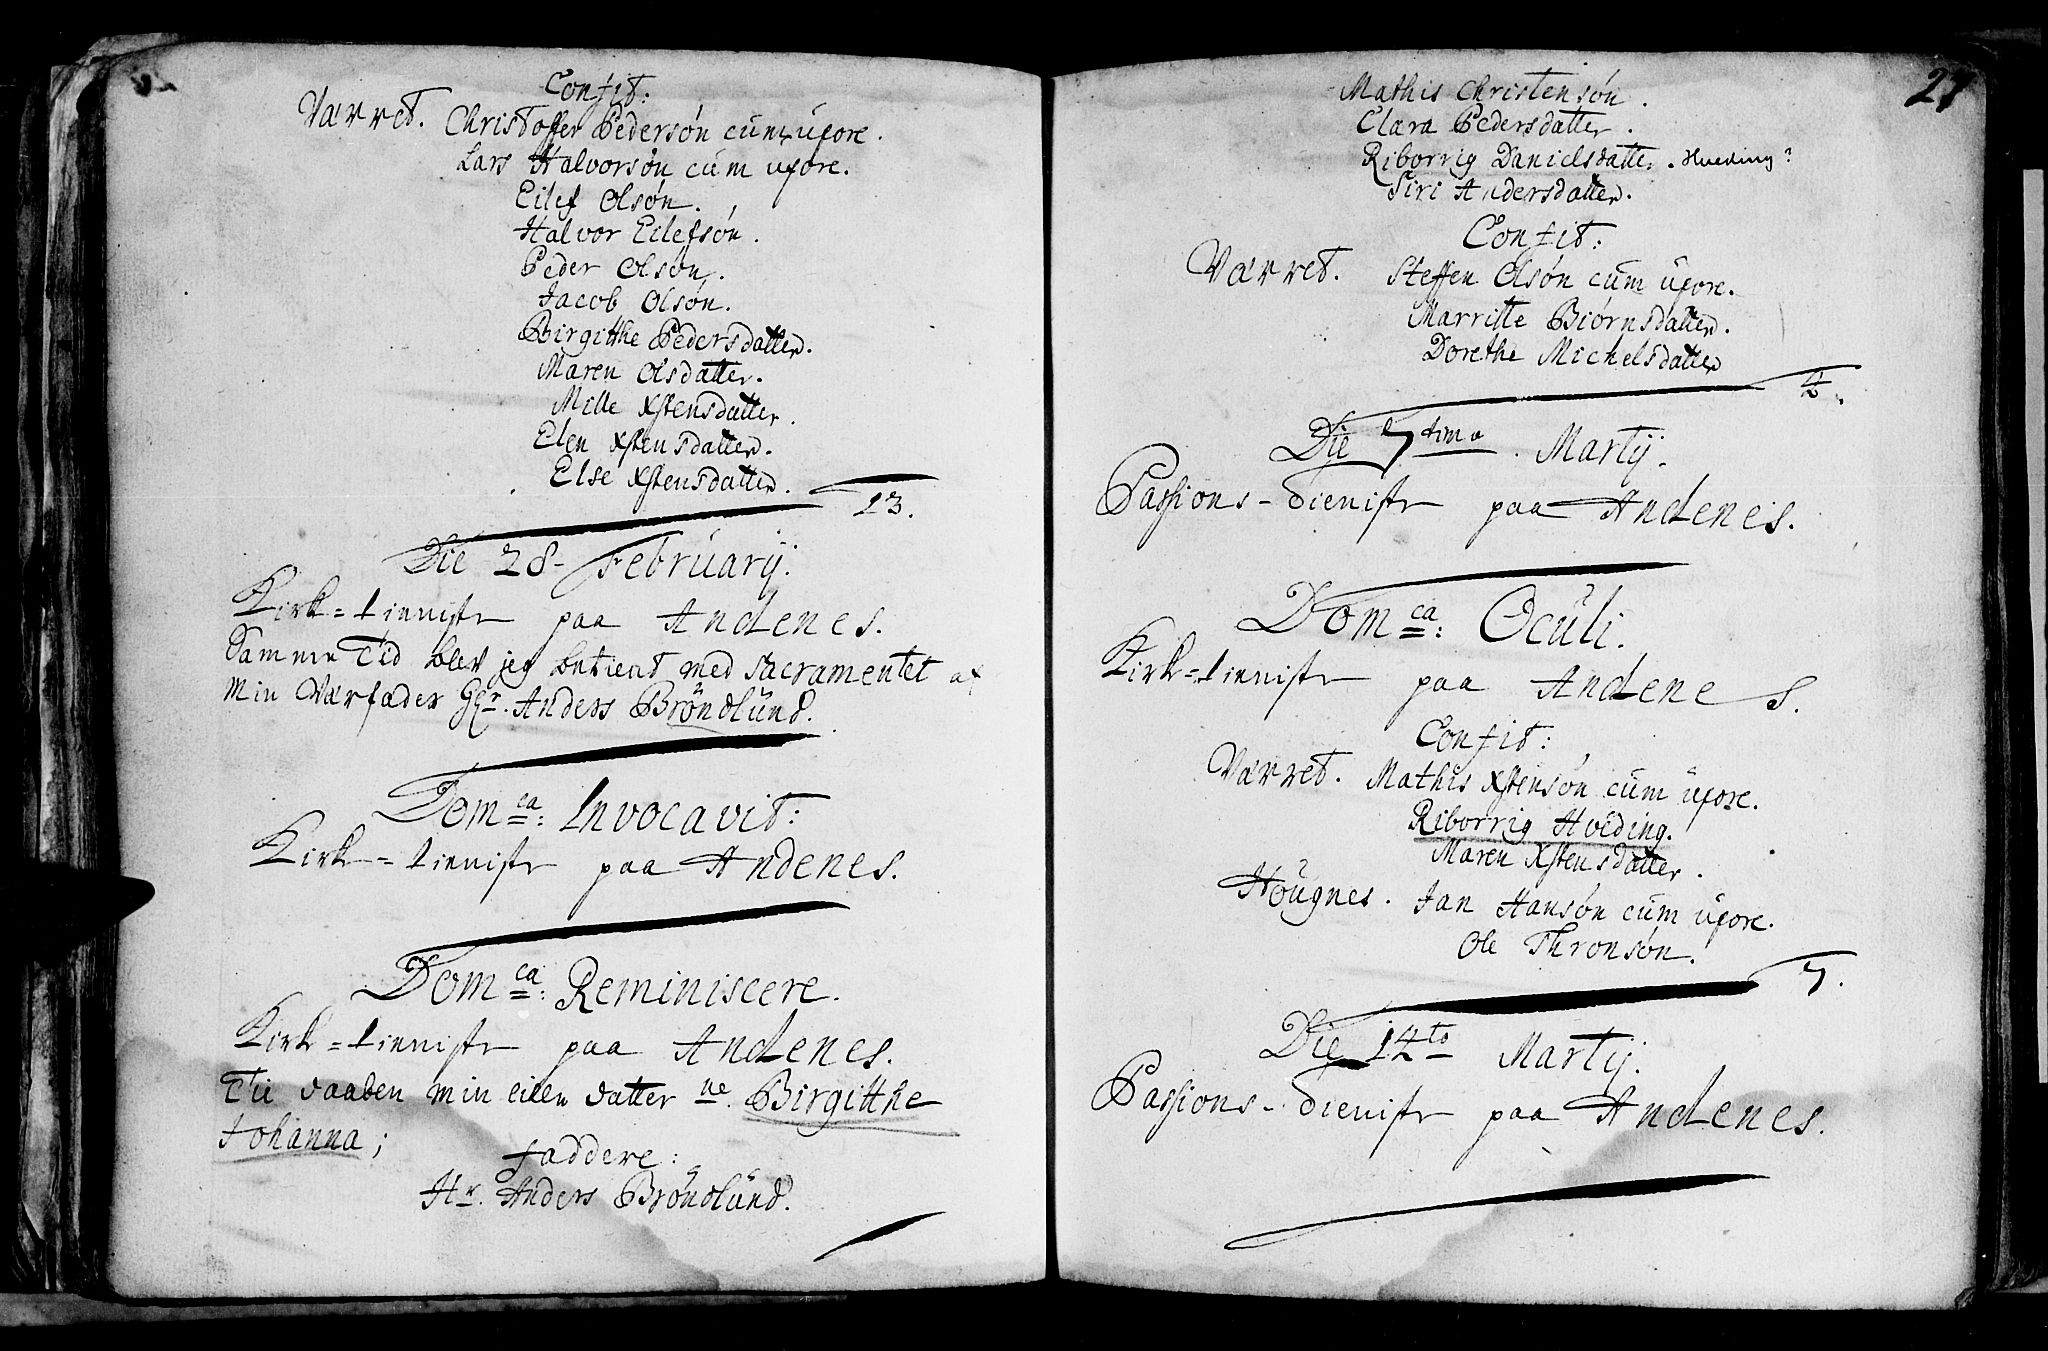 Confit:
Værret. Christoffer Pedersøn cum uxore.
Lars Halvorsøn cum uxore.
Eilef Olsøn.
Halvor Eilefsøn.
Peder Olsøn.
Jacob Olsøn.
Birgitthe Pedersdatter.
Maren Olsdatter.
Mille Xstensdatter.
Elen Xstensdatter.
Else Xstensdatter.
13.
Die 28. Februarij.
Kirk=tieniste paa Andenes.
Samme Tid blev jeg betient med Sacramentet af
min Værfader Hr. Anders Bröndlund.
Dom.ca: Invocavit:
Kirk=tieniste paa Andenes.
Dom.ca: Reminiscere.
Kirk=tieniste paa Andenes.
Til daaben min eilen datter ne. Birgitthe
Johanna;
Faddere:
Hr. Anders Bröndlund.
27
Mathis Christensøn.
Clara Pedersdatter.
Riborrig Danielsdatter. Hveding?
Siri Andersdatter.
Confit:
Værret. Steffen Olsøn cum uxore.
Marritte Biørnsdatter.
Dorethe Michelsdatter
4.
Die 7tima. Martij.
Passions-dieniste paa Andenes.
Dom.ca: Oculi.
Kirk=tieniste paa Andenes.
Confit:
Værret. Mathis Xstensøn cum uxore.
Riborrig Hveding.
Maren Xstensdatter.
Hougnes. Jan Hansøn cum uxore.
Ole Thronsøn.
7.
Die 14to Martij.
Passions-dieniste paa Andenes.